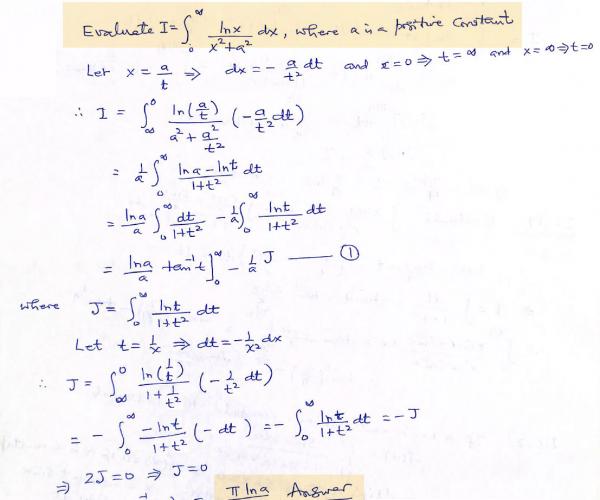 Evaluate I = ∫₀^∞ lnx/(x²+a²) dx, where a is a positive constant
Let x = a/t ⇒ dx = -a/t² dt and x=0 ⇒ t=∞ and x=∞ ⇒ t=0
∴ I = ∫_∞^0 ln(a/t)/(a² + a²/t²) (-a/t² dt)
= 1/a ∫₀^∞ (lna - lnt)/(1+t²) dt
= lna/a ∫₀^∞ dt/(1+t²) - 1/a ∫₀^∞ lnt/(1+t²) dt
= lna/a tan⁻¹t]₀^∞ - 1/a J —— ①
where J = ∫₀^∞ lnt/(1+t²) dt
Let t = 1/x ⇒ dt = -1/x² dx
∴ J = ∫_∞^0 ln(1/t)/(1 + 1/t²) (-1/t² dt)
= - ∫₀^∞ -lnt/(1+t²) (-dt) = - ∫₀^∞ lnt/(1+t²) dt = -J
⇒ 2J=0 ⇒ J=0
π lna Answer